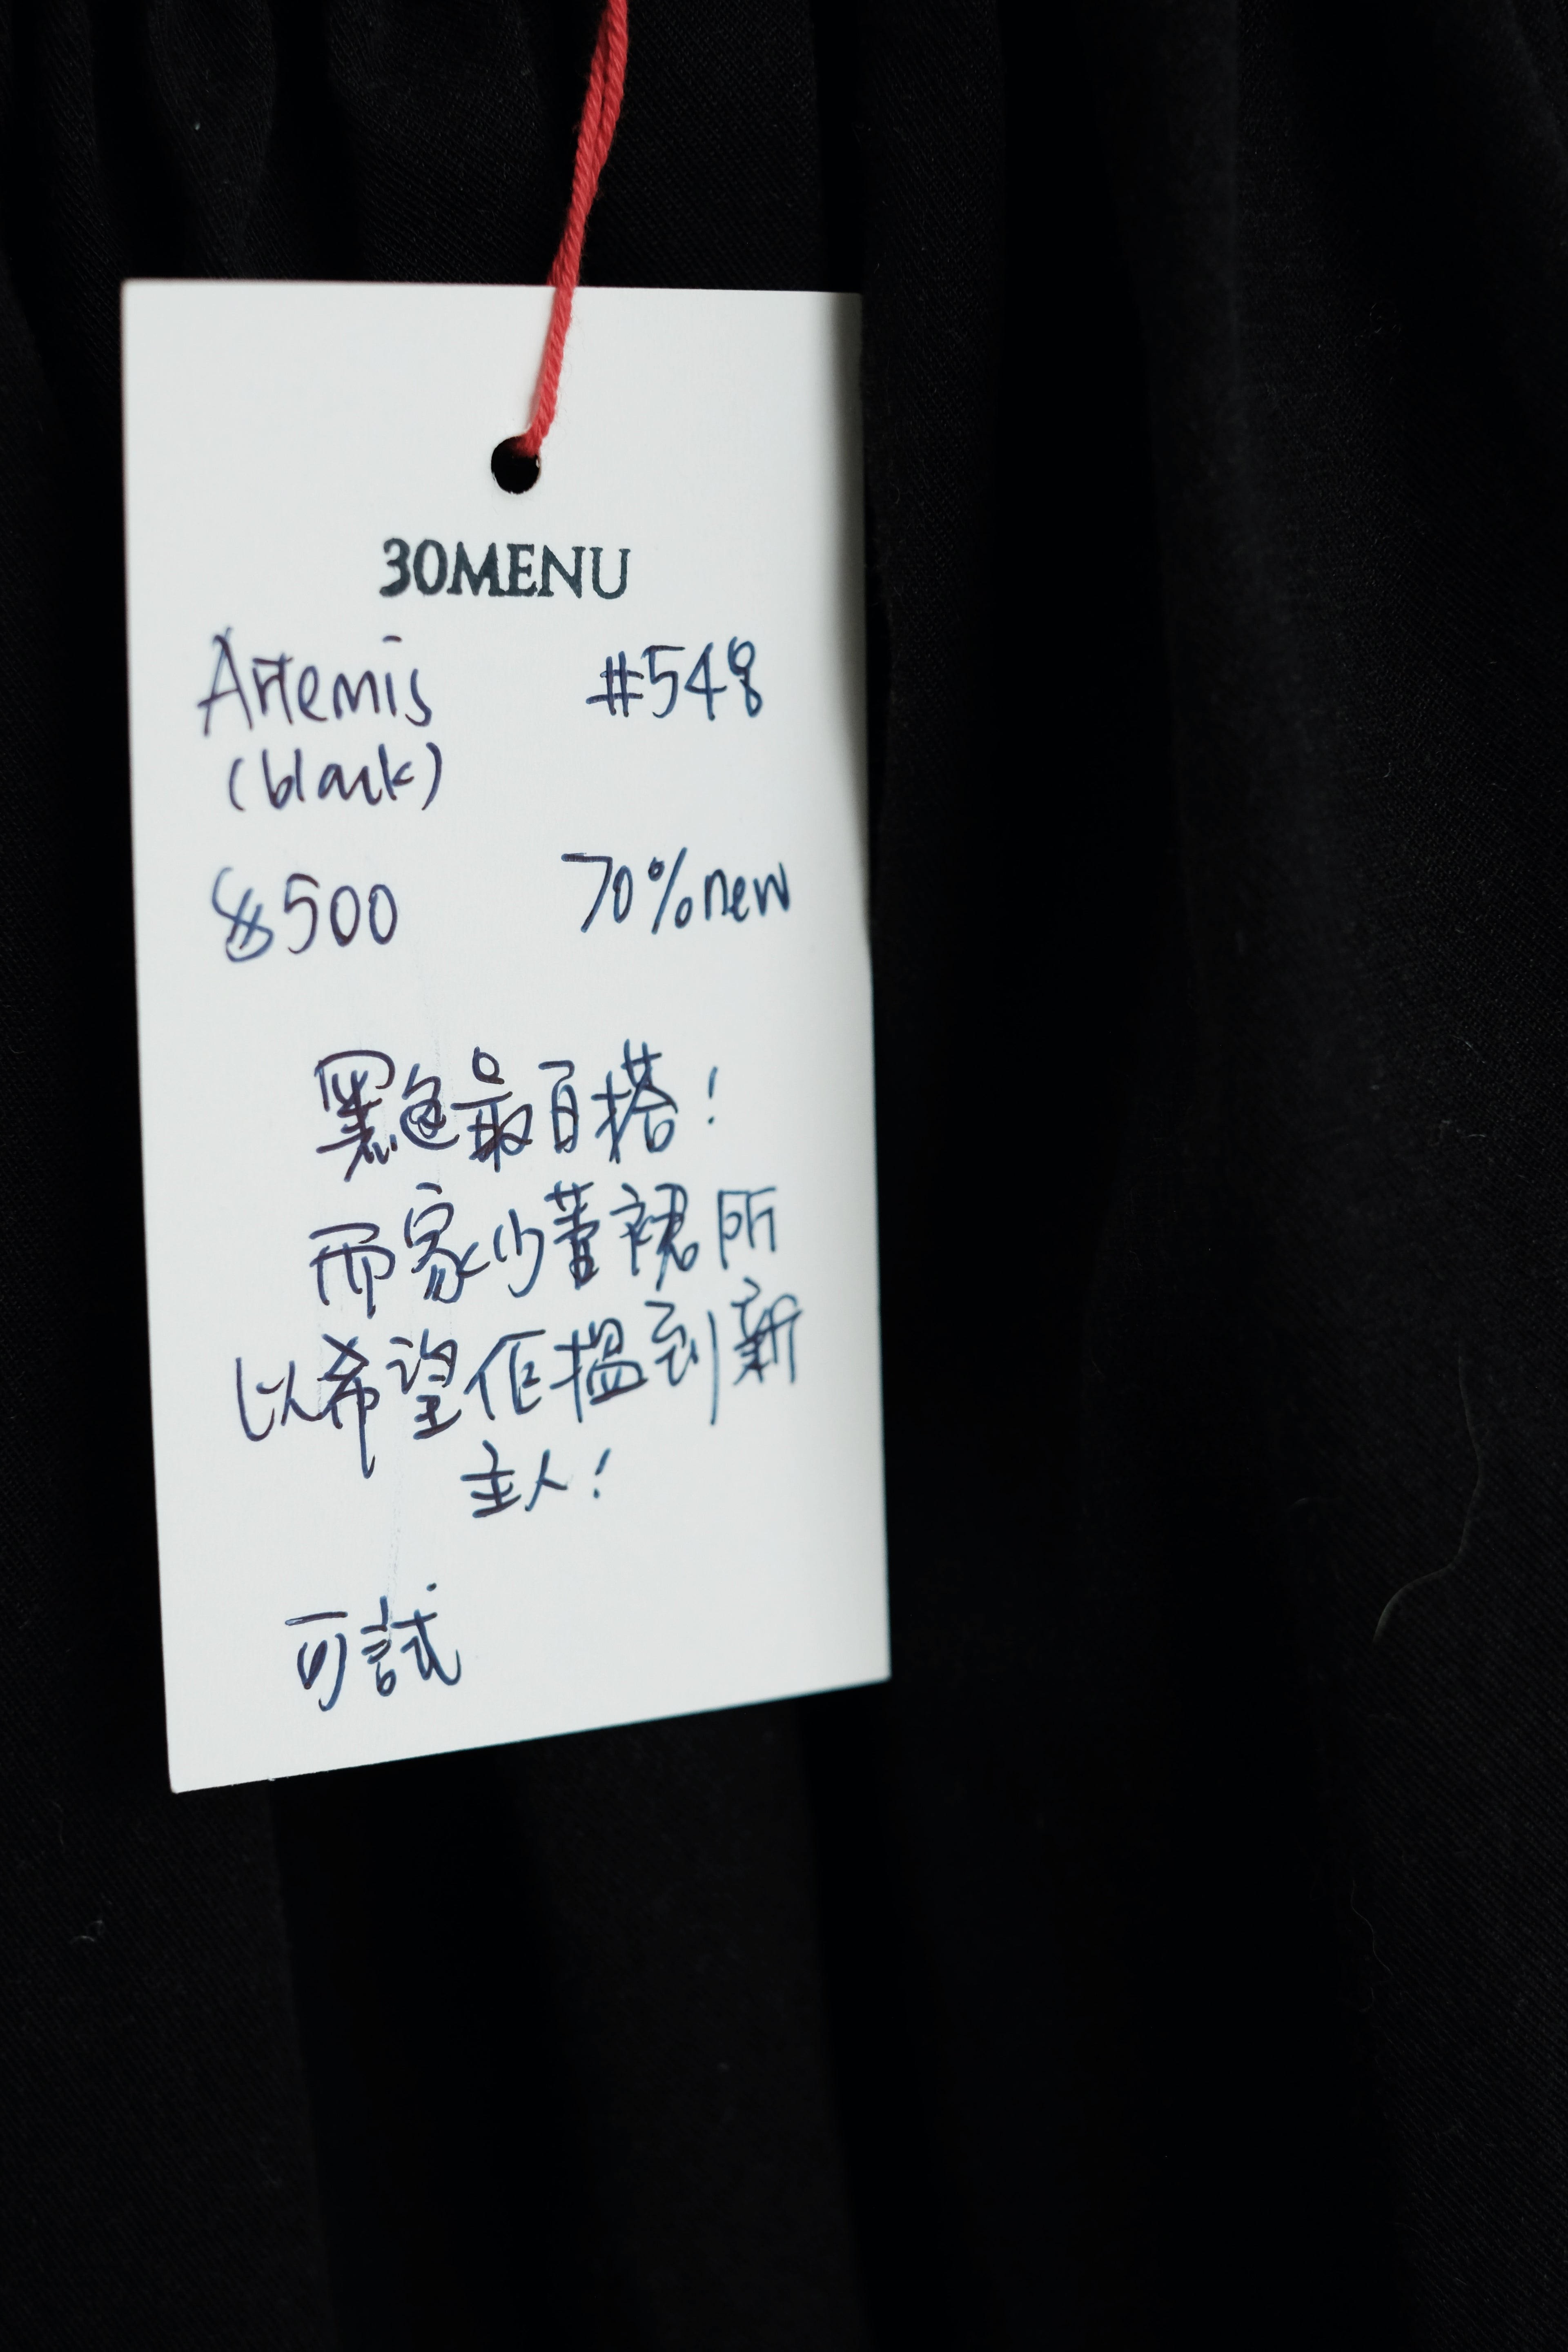 30MENU
Artemis #548
(black)
$500 70%new
黑色最百搭!
而家少著裙所
以希望佢搵到新
主人!
可試